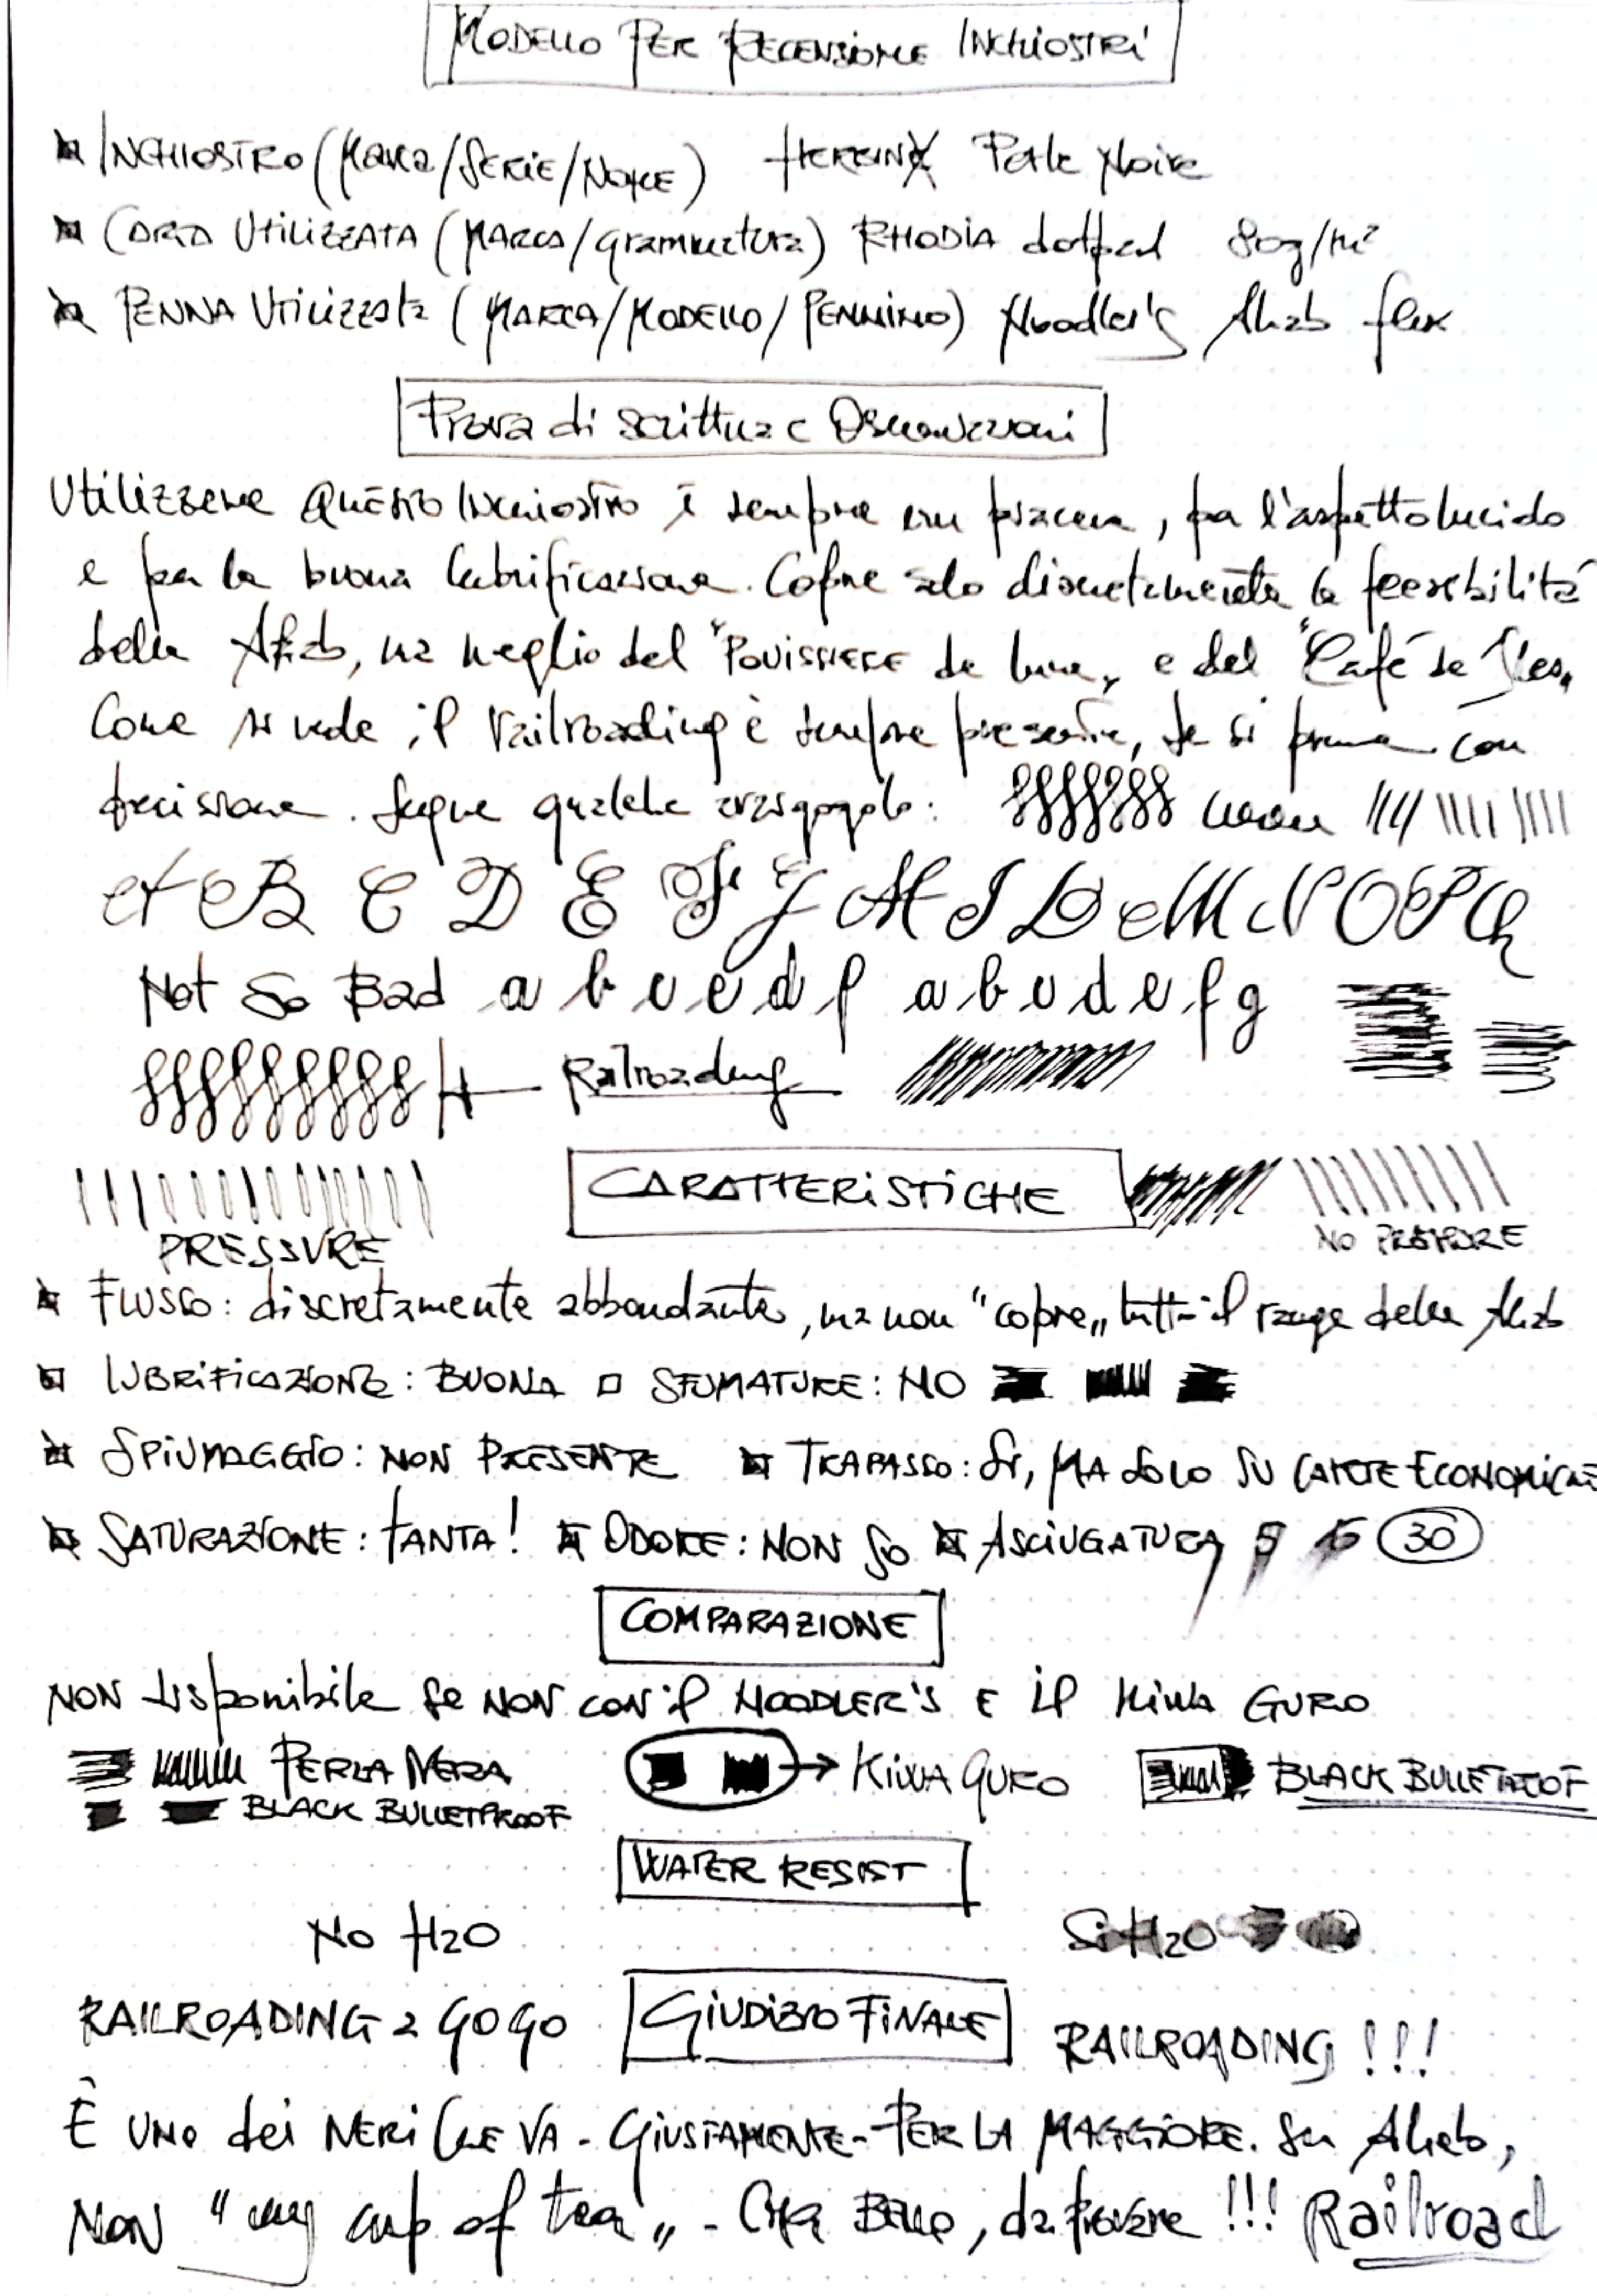 MODELLO PER RECENSIONE INCHIOSTRI
INCHIOSTRO (MARCA/SERIE/NOME) HERBIN Perle Noire
CARTA UTILIZZATA (MARCA/grammatura) RHODIA dotpad 80g/m²
PENNA UTILIZZATA (MARCA/MODELLO/PENNINO) Noodler's Ahab flex
Prova di scrittura e Osservazioni
Utilizzare QUESTO INCHIOSTRO è sempre un piacere, per l'aspetto lucido
e per la buona lubrificazione. Copre solo discretamente la flessibilità
della Ahab, ma meglio del "POUISSIERE de lune" e del "Café des Iles"
Come si vede, il railroading è sempre presente, se si preme con
decisione. Segue qualche arzigogolo:
A B C D E F G H I L M N O P Q
Not So Bad a b c e d f a b c d e f g
Railroading
CARATTERISTICHE
PRESSURE NO PRESSURE
FLUSSO: discretamente abbondante, ma non "copre" tutto il range della Ahab
LUBRIFICAZIONE: BUONA SFUMATURE: NO
SPIUMAGGIO: NON PRESENTE TRAPASSO: SI, MA SOLO SU CARTE ECONOMICHE
SATURAZIONE: TANTA! ODORE: NON SO ASCIUGATURA 5 15 30
COMPARAZIONE
NON disponibile se NON CON il NOODLER'S E il KIWA GURO
PERLA NERA KIWA GURO BLACK BULLETPROOF
BLACK BULLETPROOF
WATER RESIST
No H2O Si H2O
RAILROADING a GOGO GIUDIZIO FINALE RAILROADING!!!
È UNO dei NERI CHE VA - GIUSTAMENTE - PER LA MAGGIORE. Su Ahab,
NON "my cup of tea" - BELLO, da provare!!! Railroad